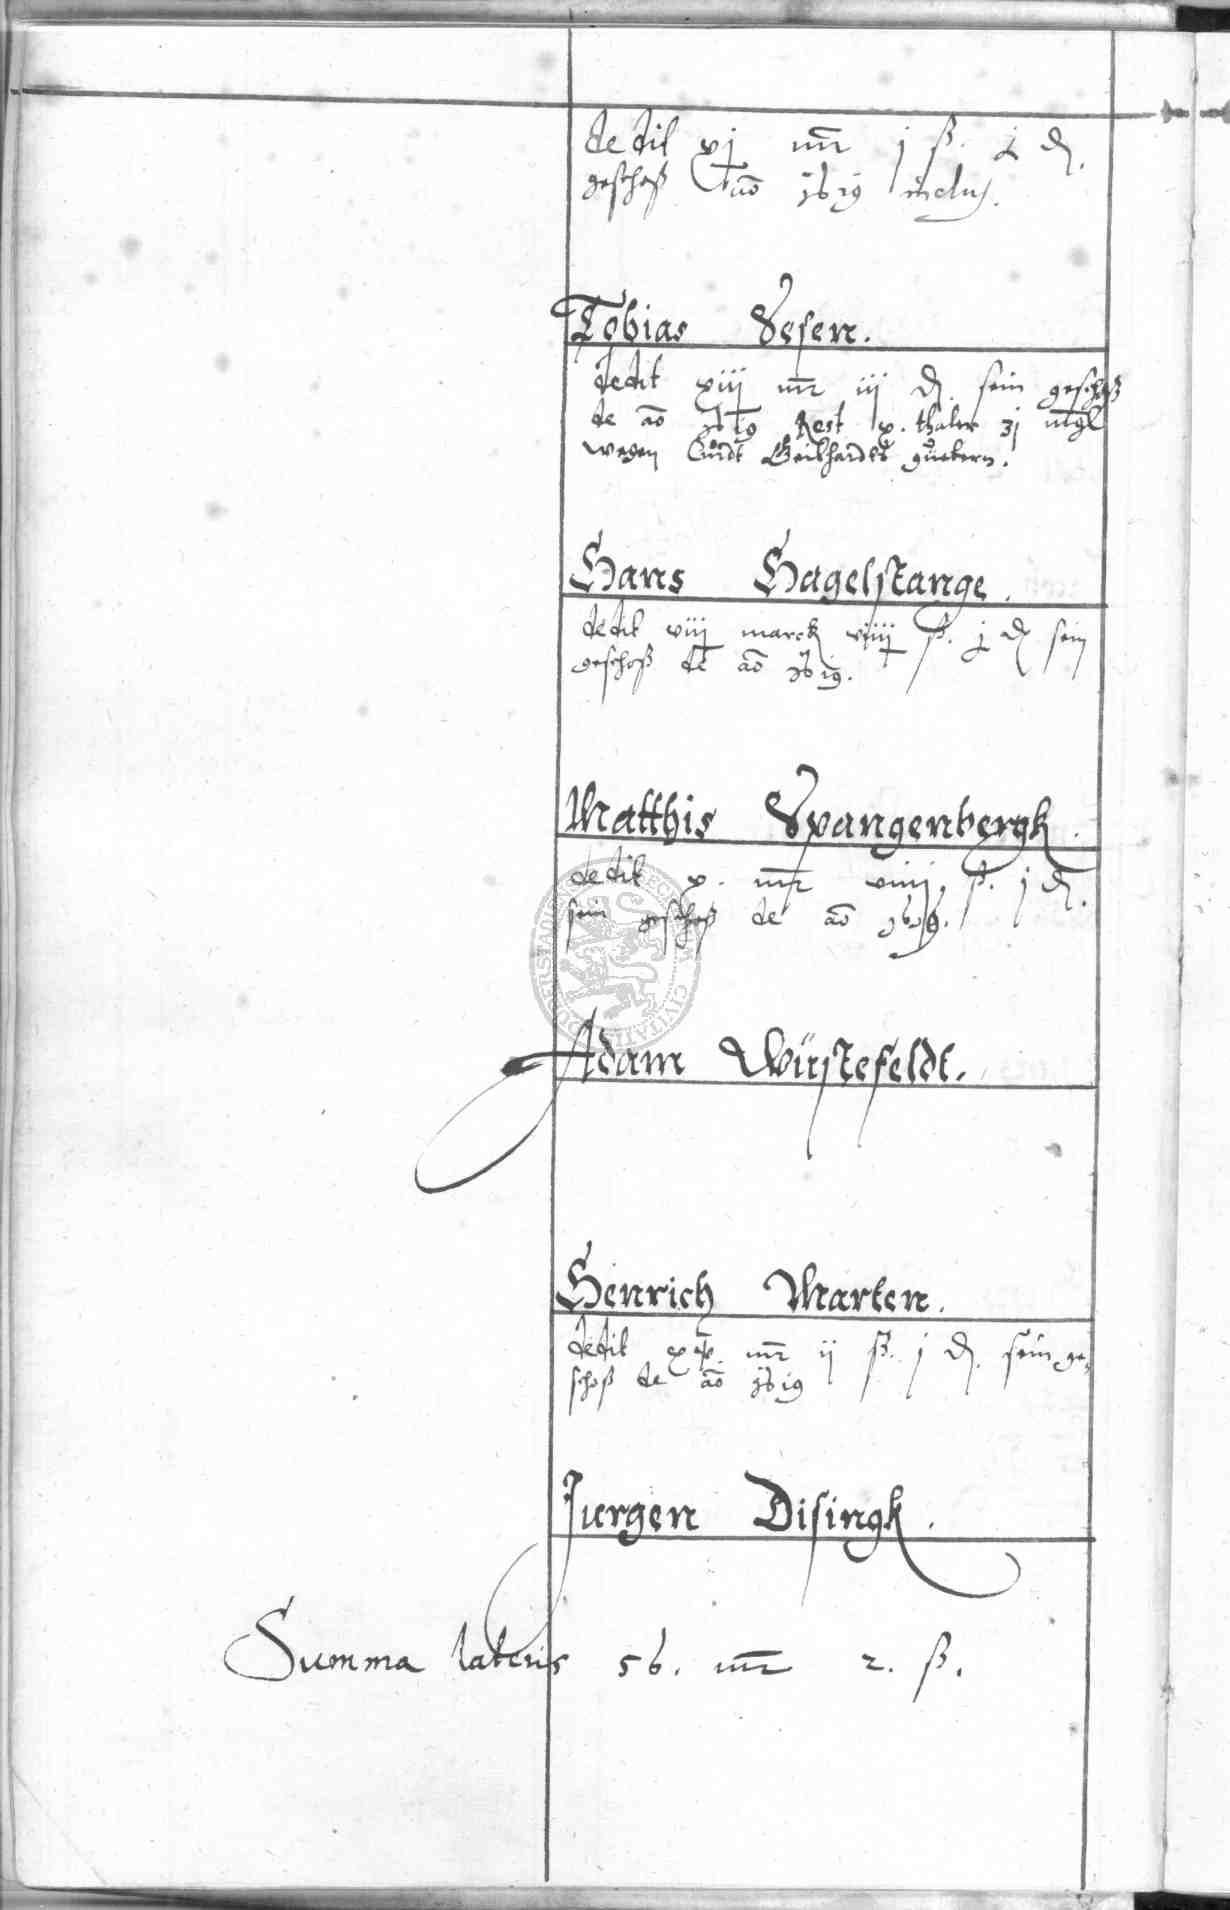 dedit xj mr j ß. j d.
geschoß ao 1619 inclus.
Tobias Sesen.
dedit xiij mr iij d. sein geschoß
de ao 1619 Rest x. thaler 3j mgl
wegen Curdt Geilhardts guetern.
Hans Hagelstange.
dedit viij marck viiij ß. j d sein
geschoß de ao 1619.
Matthis Spangenbergk.
dedit x. mr viiij ß. j d.
sein geschoß de ao 1619.
Adam Wüstefeldt.
Henrich Marten.
dedit mr ij ß. j d. sein ge-
schoß de ao 1619
Jurgen Disingk.
Summa lateris 56. mr 2. ß.